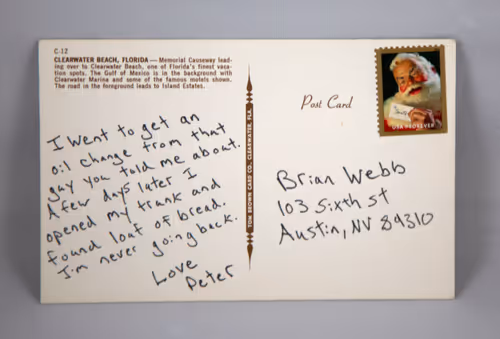 C-12
CLEARWATER BEACH, FLORIDA — Memorial Causeway lead-
ing over to Clearwater Beach, one of Florida's finest vaca-
tion spots. The Gulf of Mexico is in the background with
Clearwater Marina and some of the famous motels shown.
The road in the foreground leads to Island Estates.
I went to get an
oil change from that
guy you told me about.
A few days later I
opened my trunk and
found loaf of bread.
I'm never going back.
Love
Peter
TOM BROWN CARD CO., CLEARWATER, FLA.
Post Card
USA FOREVER
Brian Webb
103 Sixth St
Austin, NV 89310